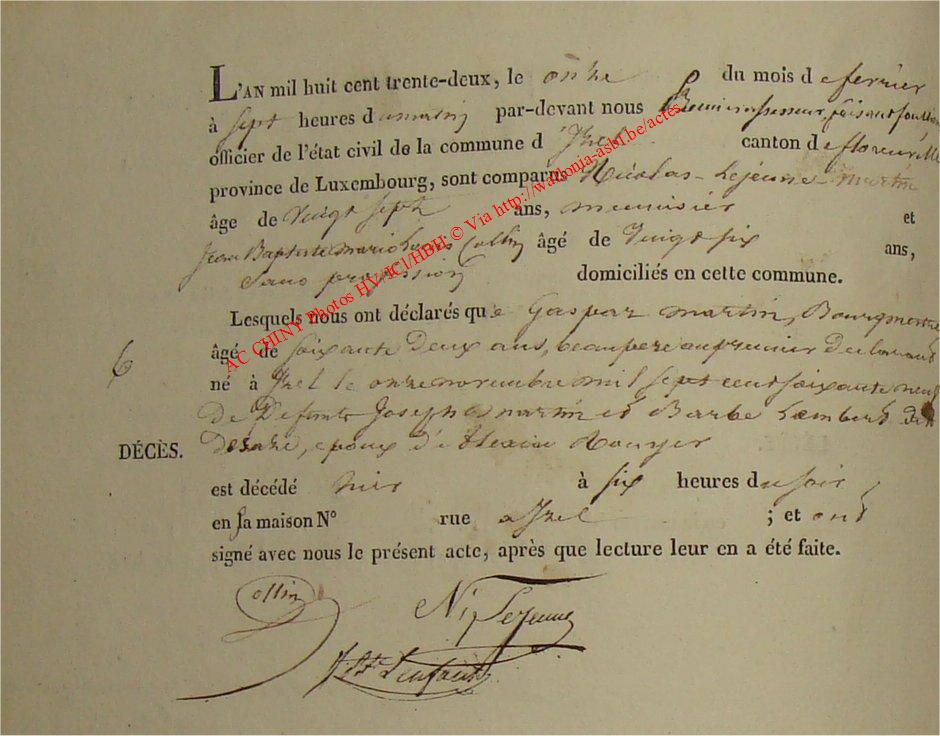 L'AN mil huit cent trente-deux, le onze du mois de fevrier
à sept heures du matin par-devant nous Premier assesseur, faisant fonction
officier de l'état civil de la commune d'Izel canton de florenville
province de Luxembourg, sont comparus Nicolas Lejeune martin
âge de vingt sept ans, menuisier et
Jean Baptiste Collin âgé de vingt six ans,
Sans profession domiciliés en cette commune.
Lesquels nous ont déclarés que Gaspar martin, Bourgmestre
6 âgé de soixante Deux ans, beaupere au premier declarant
né à Izel le onze novembre mil sept cent soixante neuf
De Defunts Joseph martin et Barbe Lambert
DÉCÈS. epoux d'
est décédé hier à six heures du soir
en sa maison N° rue a Izel ; et ont
signé avec nous le présent acte, après que lecture leur en a été faite.
Collin
N: Lejeune
AC CHINY Photos HV/ICI/HBH © Via http://wallonia-asbl.be/actes